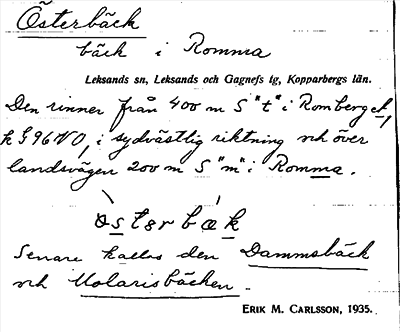 Österbäck
bäck i Romma
Leksands sn, Leksands och Gagnefs tg, Kopparbergs län.
Den rinner från 400 m S "t" i Romberget,
k S 96 NO, i sydvästlig riktning och över
landsvägen 200 m S "m" i Romma.
østerbæk
Senare kallas den Dammsbäck
och Molarisbäcken.
ERIK M. CARLSSON, 1935.